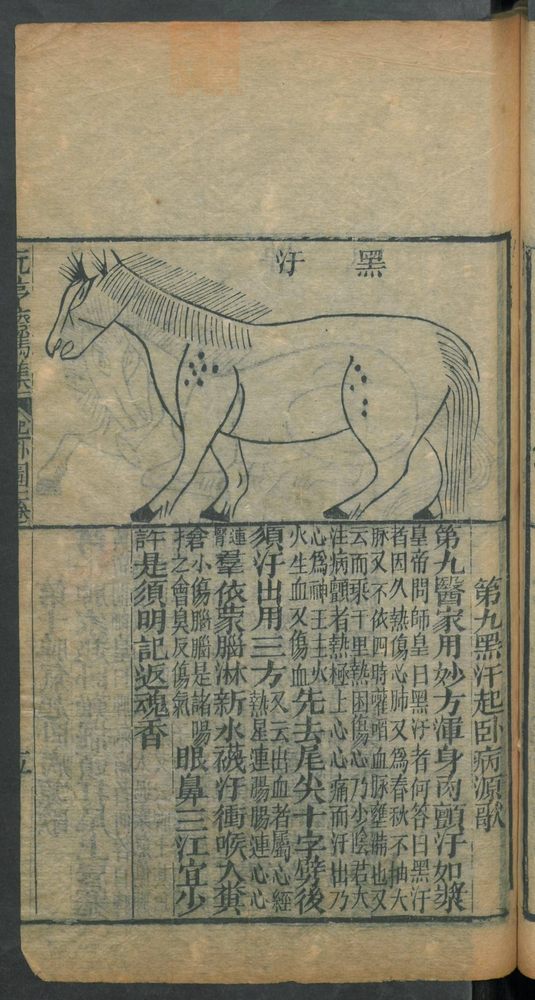 黑汗
第九黑汗起卧病源歌
第九醫家用妙方渾身肉顫汗如漿
皇帝問師皇曰黑汗者何答曰黑汗
者因久熱傷心肺又爲春秋不抽大
脉又不依四時嚾啗血脉壅滯也又
云而乘千里熱困傷心乃少陰君火
注病顫者熱極上心心痛而汗出乃
心爲神王主火
火生血又傷血
先去尾尖十字劈後
須汗出用三方
又云出血者屬心經
熱星連腸腸連心心
連
腎
羣依蒙腦淋新水襪汗衝喉入糞
搶
小傷腦腦是諸陽
之會臭反傷氣
眼鼻三江宜少
許是須明記返魂香
元亨療馬集
起卧圖三卷
五